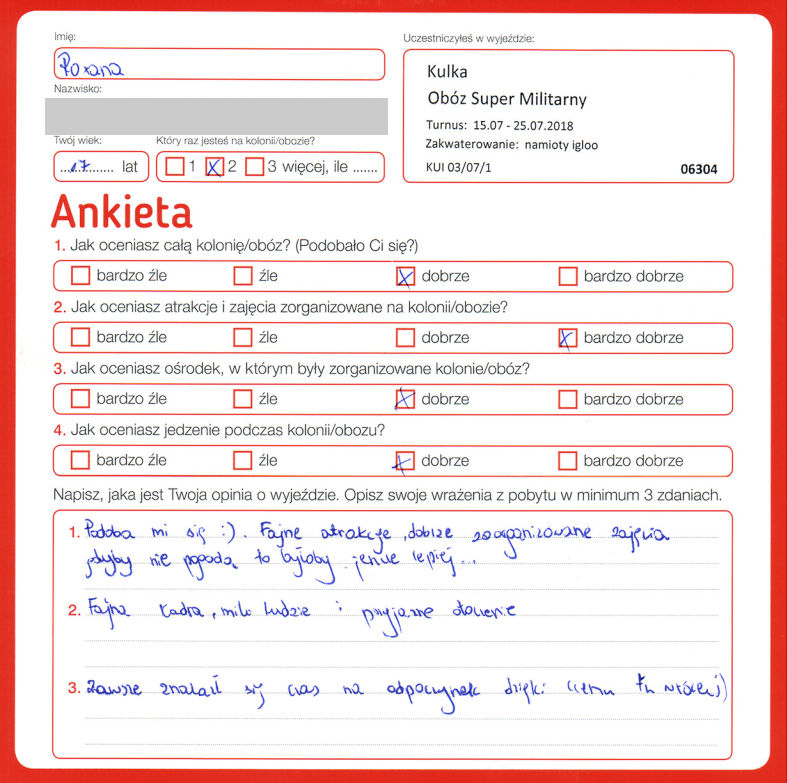 Imię:
Roxana
Nazwisko:
Twój wiek:
17 lat
Który raz jesteś na kolonii/obozie?
1 X 2 3 więcej, ile .......
Uczestniczyłeś w wyjeździe:
Kulka
Obóz Super Militarny
Turnus: 15.07 - 25.07.2018
Zakwaterowanie: namioty igloo
KUI 03/07/1 06304
Ankieta
1. Jak oceniasz całą kolonię/obóz? (Podobało Ci się?)
bardzo źle źle X dobrze bardzo dobrze
2. Jak oceniasz atrakcje i zajęcia zorganizowane na kolonii/obozie?
bardzo źle źle dobrze X bardzo dobrze
3. Jak oceniasz ośrodek, w którym były zorganizowane kolonie/obóz?
bardzo źle źle X dobrze bardzo dobrze
4. Jak oceniasz jedzenie podczas kolonii/obozu?
bardzo źle źle X dobrze bardzo dobrze
Napisz, jaka jest Twoja opinia o wyjeździe. Opisz swoje wrażenia z pobytu w minimum 3 zdaniach.
1. Podoba mi się :). Fajne atrakcje, dobrze zoorganizowane zajęcia
gdyby nie pogoda, to byłoby jeszcze lepiej...
2. Fajna kadra, mili ludzie i przyjazne otoczenie
3. Zawsze znalazł się czas na odpoczynek dzięki czemu tu wrócę :)